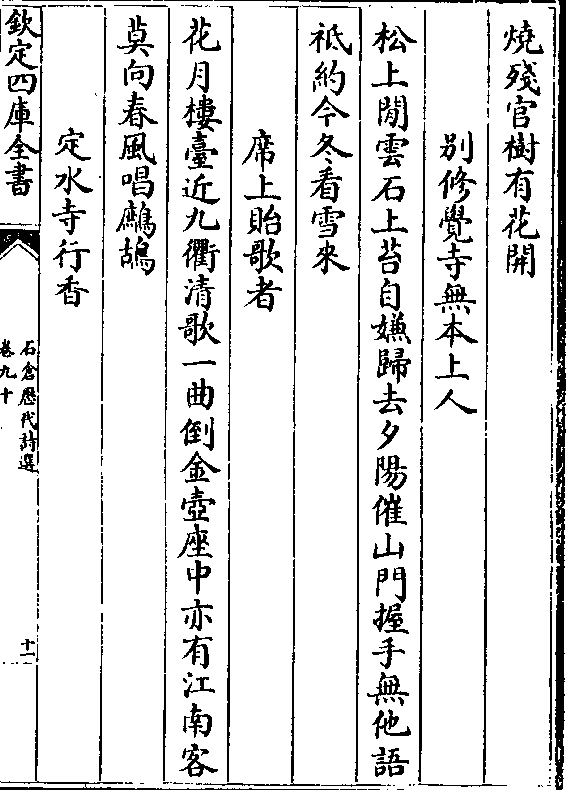 燒殘官樹有花開
別修覺寺無本上人
松上閒雲石上苔自嫌歸去夕陽催山門握手無他語
祗約今冬看雪來
席上貽歌者
花月樓臺近九衢清歌一曲倒金壺座中亦有江南客
莫向春風唱鷓鴣
定水寺行香
欽定四庫全書
石倉歷代詩選
卷九十
十一